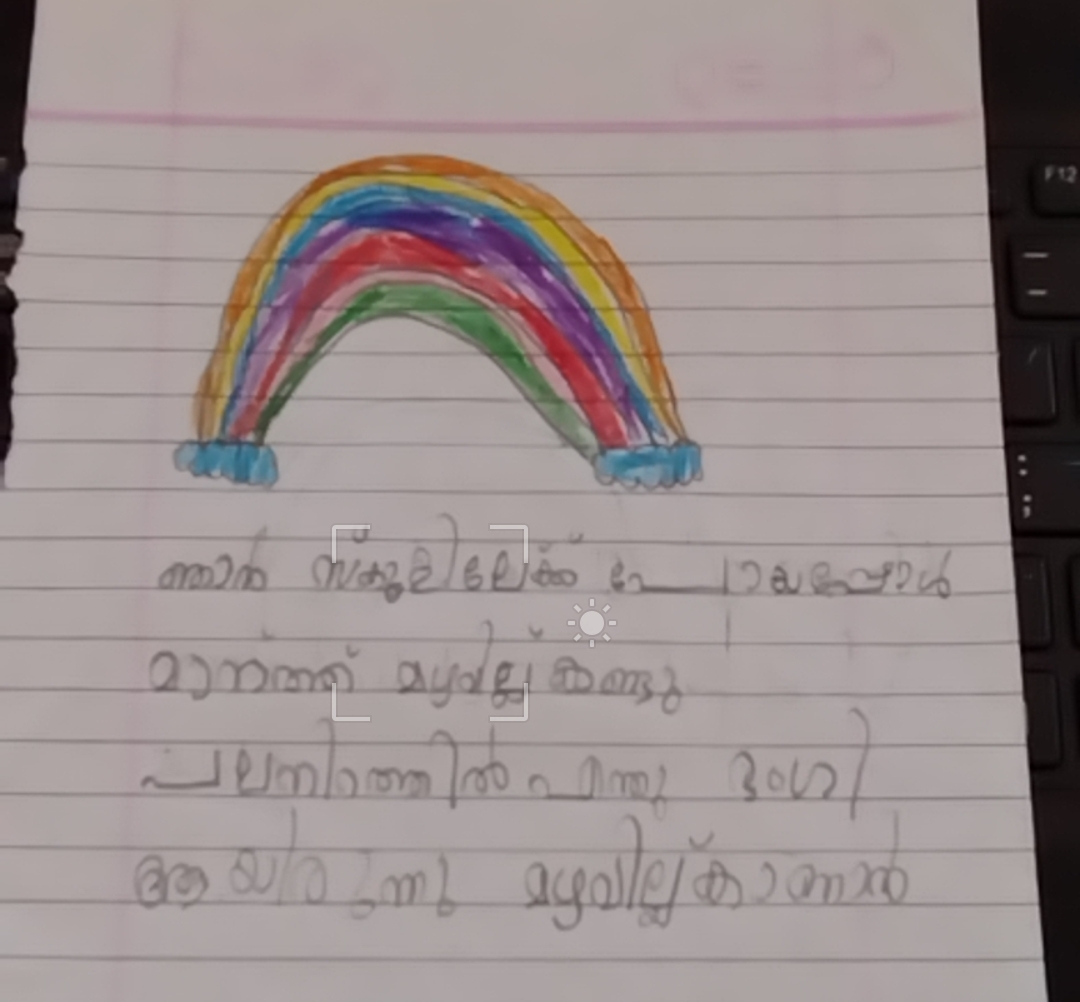 ഞാൻ സ്കൂളിലേക്ക് പോയപ്പോൾ
മാനത്ത് മഴവില്ല് കണ്ടു
പലനിറത്തിൽ എന്തു ഭംഗി
ആയിരുന്നു മഴവില്ല്കാണാൻ
F12